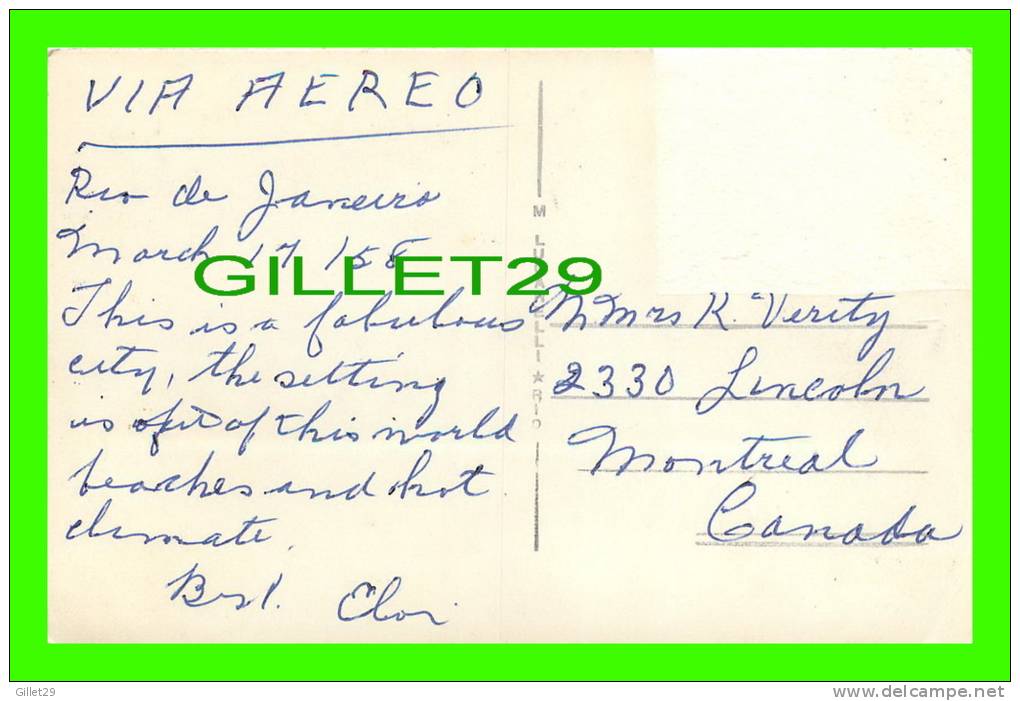 VIA AEREO
Rio de Janeiro
March 17/58
This is a fabulous
city, the setting
is out of this world
beaches and hot
climate.
Best.
GILLET29
M LUZANELLI ★ RIO
Mrs K. Verity
2330 Lincoln
Montreal
Canada
Gillet29
http://www.delcampe.com